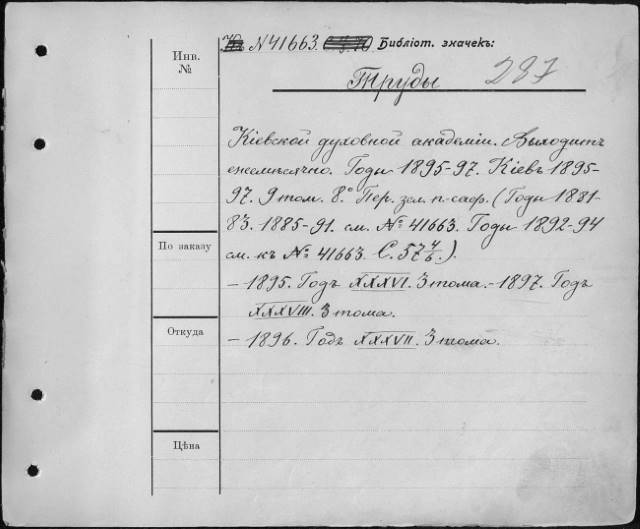 № 41663. Библіот. значекъ:
Инв.
№
Труды
287
Кіевской духовной академіи. Выходитъ
ежемѣсячно. Годы 1895-97. Кіевъ 1895-
97. 9 том. 8.° Пер. зел. п.-саф. (Годы 1881-
83. 1885-91. см. № 41663. Годы 1892-94
см. къ № 41663. С. 57 4/6.).
— 1895. Годъ XXXVI. 3 тома. — 1897. Годъ
XXXVIII. 3 тома.
— 1896. Годъ XXXVII. 3 тома.
По заказу
Откуда
Цѣна